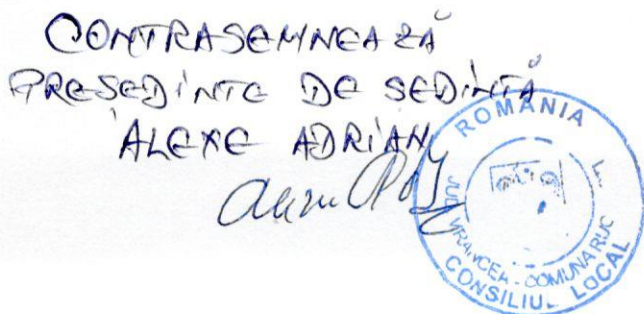 CONTRASEMNEAZĂ
PRESEDINTE DE SEDINTĂ
ALEXE ADRIAN
ROMÂNIA
JUD. VRANCEA - COMUNA RUC
CONSILIUL LOCAL